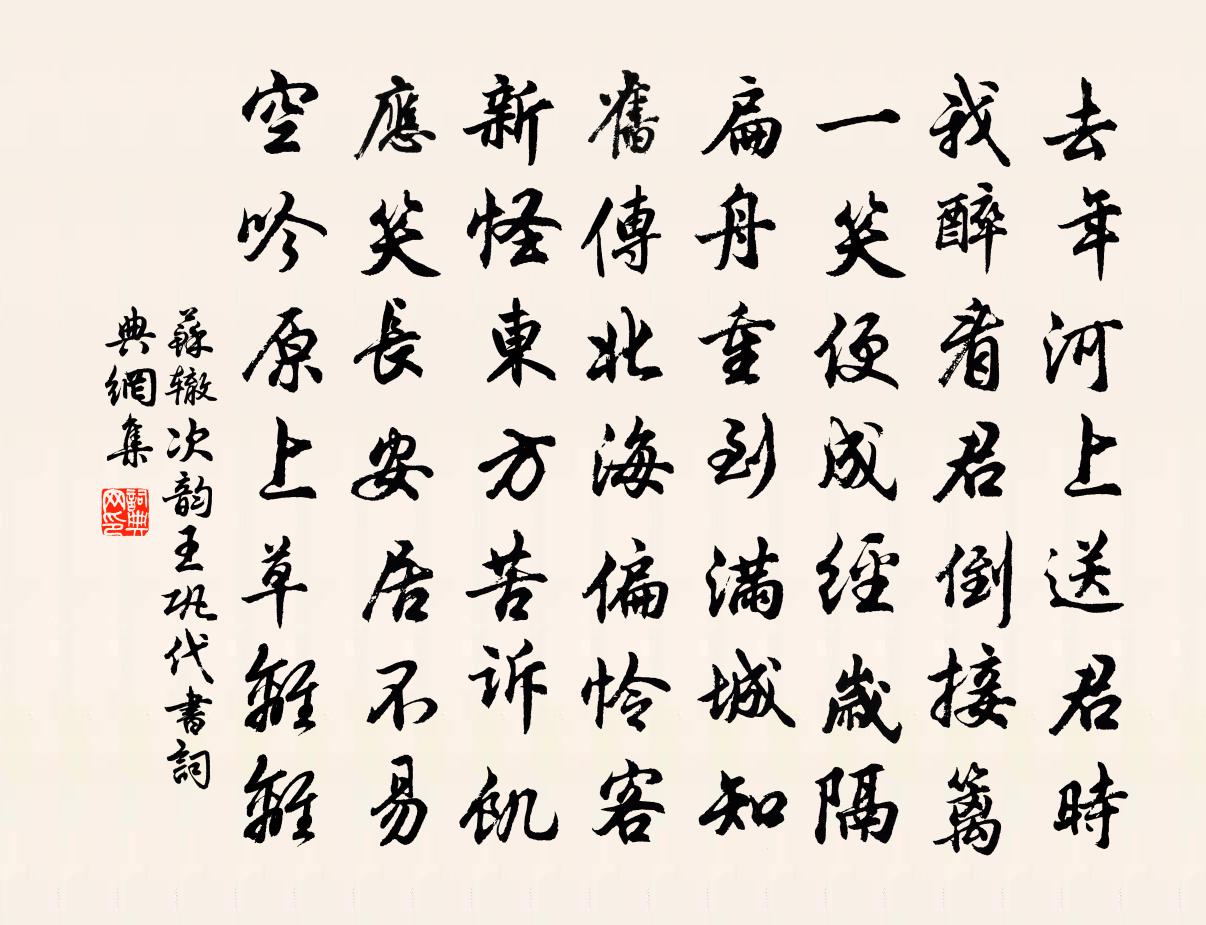 去年河上送君時
我醉看君倒接籬
一笑便成經歲隔
扁舟重到滿城知
舊傳北海偏憐客
新怪東方苦訴飢
應笑長安居不易
空吟原上草離離
蘇轍次韵王巩代書詞
典網集
詞典网印